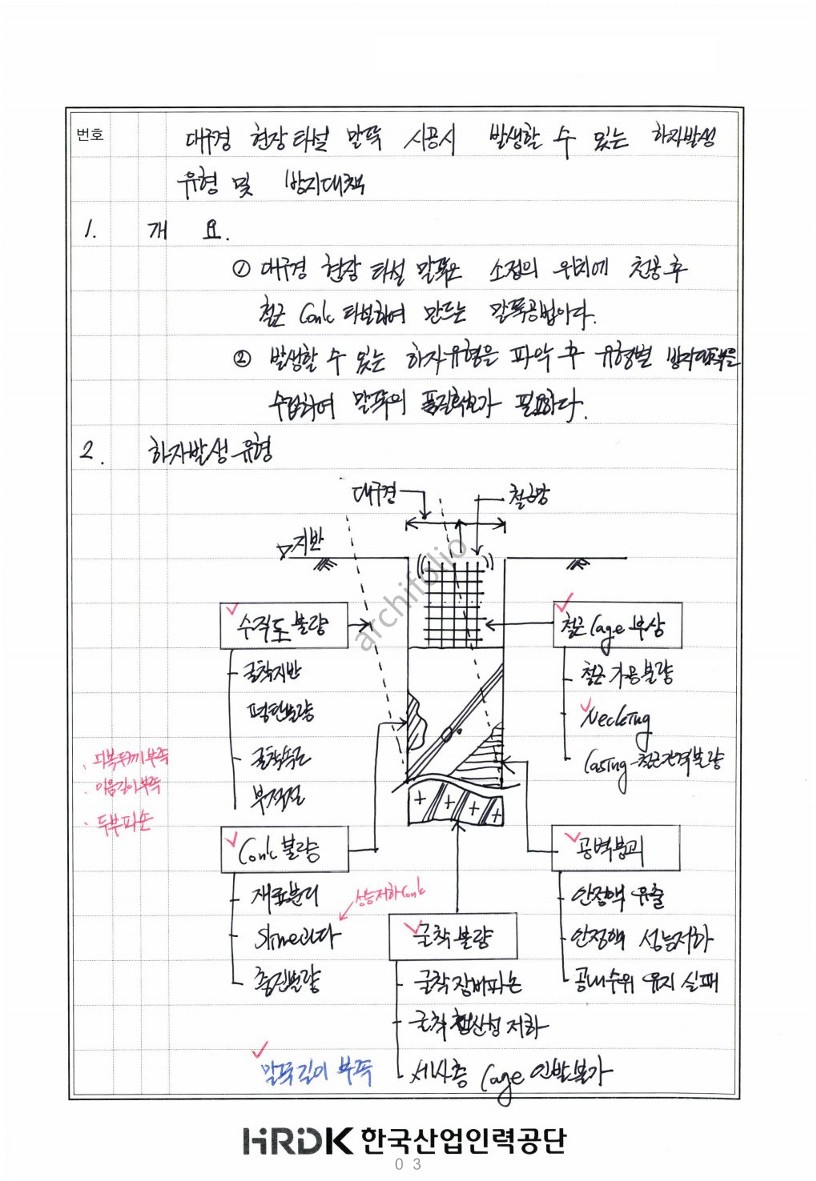 번호
대구경 현장타설 말뚝 시공시 발생할 수 있는 하자발생
유형 및 방지대책
1. 개 요.
① 대구경 현장 타설 말뚝은 소정의 위치에 천공 후
철근 Conc 타설하여 만드는 말뚝공법이다.
② 발생할 수 있는 하자유형을 파악 후 유형별 방지대책을
수립하여 말뚝의 품질확보가 필요하다.
2. 하자발생 유형
대구경
철근망
지반
archifolio
수직도 불량
굴착지반
평탄불량
굴착속도
부적절
철근 Cage 부상
철근 가공불량
Necking
Casing-철근간격불량
· 피복두께부족
· 이음길이부족
· 두부파손
Con'c 불량
재료분리
Slime과다
충진불량
성능저하 Con'c
공벽붕괴
안정액 유출
안정액 성능저하
공내수위 유지 실패
굴착불량
굴착장비파손
굴착 생산성 저하
세사층 Cage 인발불가
말뚝길이 부족
HRDK 한국산업인력공단
03